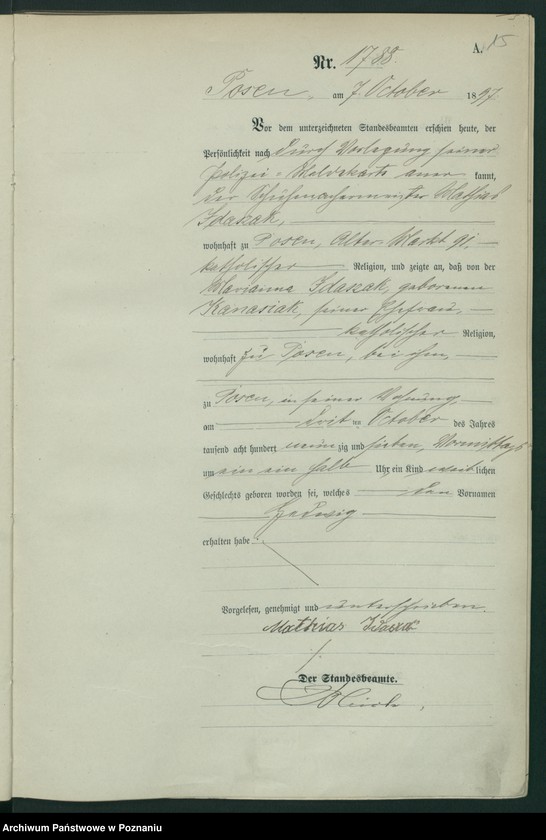 A. 15
Nr. 1788.
Posen, am 7. October 1897.
Vor dem unterzeichneten Standesbeamten erschien heute, der
Persönlichkeit nach durch Vorlegung seiner
Polizei-Meldekarte aner kannt,
der Schuhmachermeister Mathias
Idaszak,
wohnhaft zu Posen, Alter Markt 91,
katholischer Religion, und zeigte an, daß von der
Marianna Idaszak, geborenen
Kanasiak, seiner Ehefrau,
katholischer Religion,
wohnhaft zu Posen, bei ihm,
zu Posen, in seiner Wohnung
am drit ten October des Jahres
tausend acht hundert neun zig und sieben, Vormittags
um ein ein halb Uhr ein Kind weib lichen
Geschlechts geboren worden sei, welches den Vornamen
Hedwig
erhalten habe.
Vorgelesen, genehmigt und unterschrieben.
Mathias Idaszak
Der Standesbeamte.
Archiwum Państwowe w Poznaniu